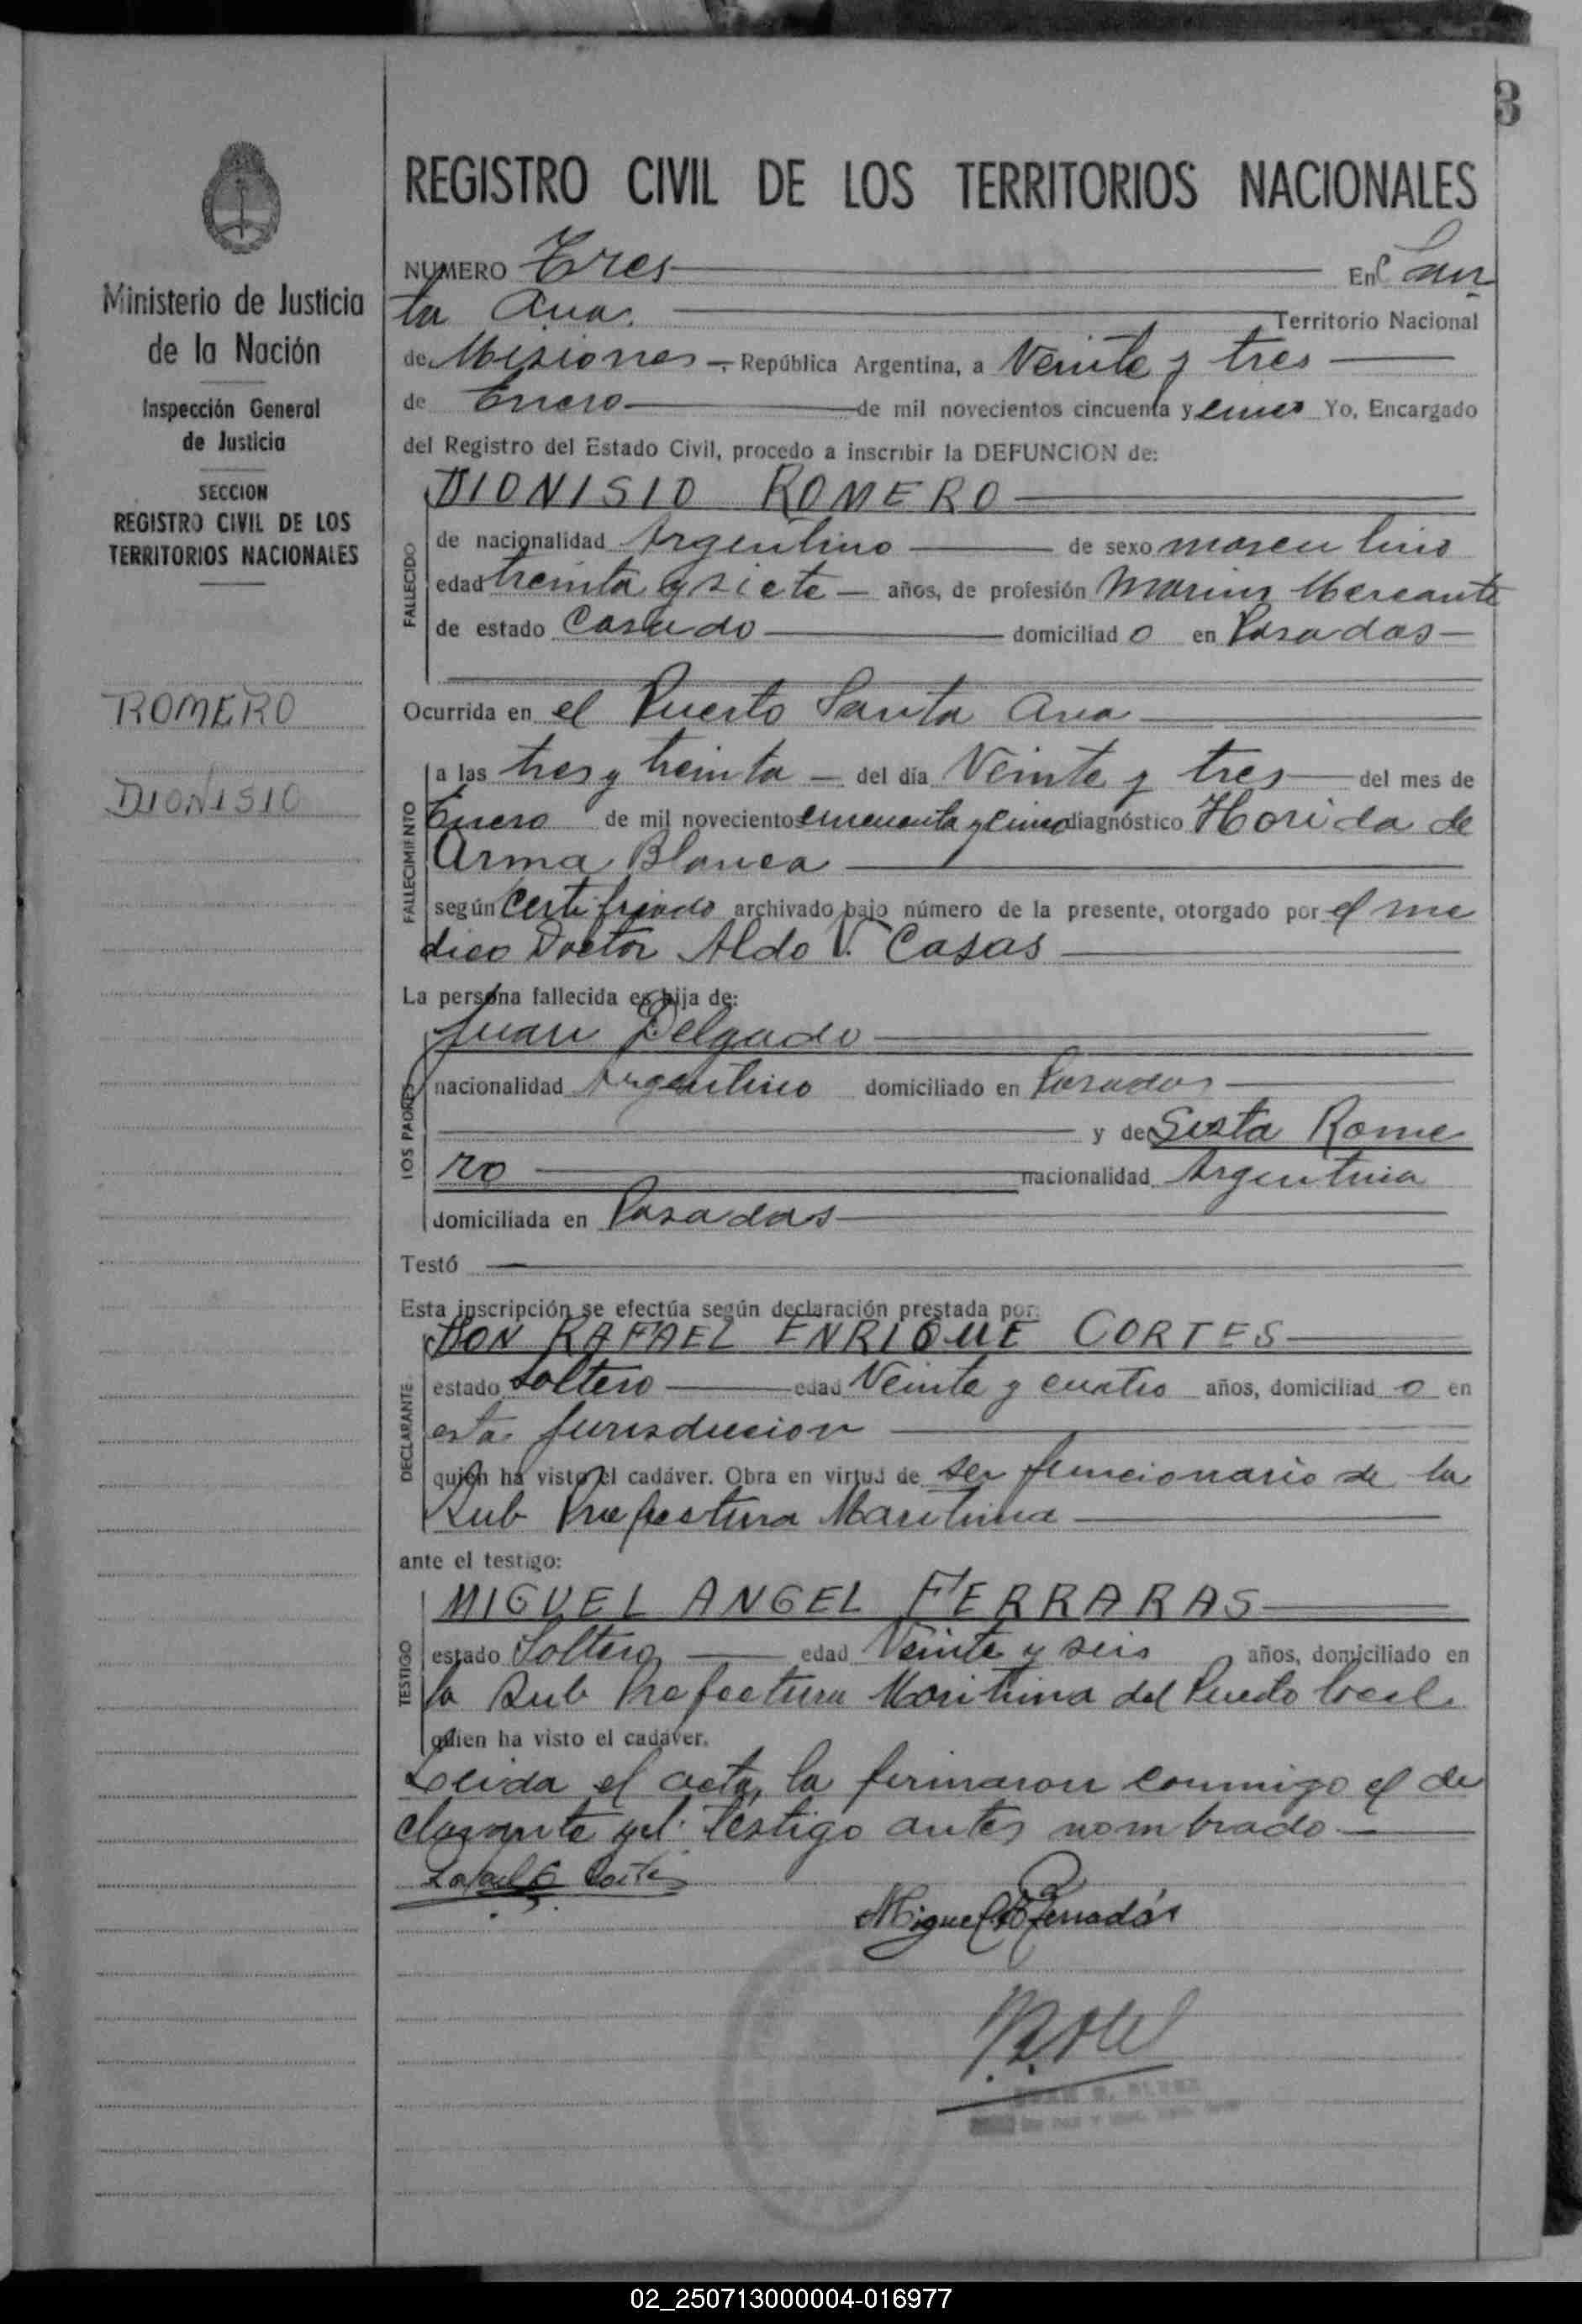 3
REGISTRO CIVIL DE LOS TERRITORIOS NACIONALES
NUMERO Tres En San
ta Ana. Territorio Nacional
de Misiones - República Argentina, a Veinte y tres
de Enero de mil novecientos cincuenta y cinco Yo, Encargado
del Registro del Estado Civil, procedo a inscribir la DEFUNCION de:
DIONISIO ROMERO
FALLECIDO
de nacionalidad Argentino de sexo masculino
edad treinta y siete años, de profesión Marino Mercante
de estado Casado domiciliad o en Posadas
Ocurrida en el Puerto Santa Ana
FALLECIMIENTO
a las tres y treinta del día Veinte y tres del mes de
Enero de mil novecientos cincuenta y cinco diagnóstico Horida de
Arma Blanca
según Certificado archivado bajo número de la presente, otorgado por el me
dico Doctor Aldo V. Casas
La persona fallecida es hija de:
LOS PADRES
Juan Delgado
nacionalidad Argentino domiciliado en Posadas
y de Sista Rome
ro nacionalidad Argentina
domiciliada en Posadas
Testó
Esta inscripción se efectúa según declaración prestada por:
DECLARANTE
DON RAFAEL ENRIQUE CORTES
estado Soltero edad Veinte y cuatro años, domiciliad o en
esta Jurisducion
quien ha visto el cadáver. Obra en virtud de ser funcionario de la
Sub Prefectura Maritima
ante el testigo:
TESTIGO
MIGUEL ANGEL FERRARAS
estado Soltero edad Veinte y seis años, domiciliado en
la Sub Prefectura Maritima del Puerto local
quien ha visto el cadáver.
Leida el acta, la firmaron conmigo el de
clarante y el testigo antes nombrado
Rafael E Cortes
Miguel
Ministerio de Justicia
de la Nación
Inspección General
de Justicia
SECCION
REGISTRO CIVIL DE LOS
TERRITORIOS NACIONALES
ROMERO
DIONISIO
02_250713000004-016977